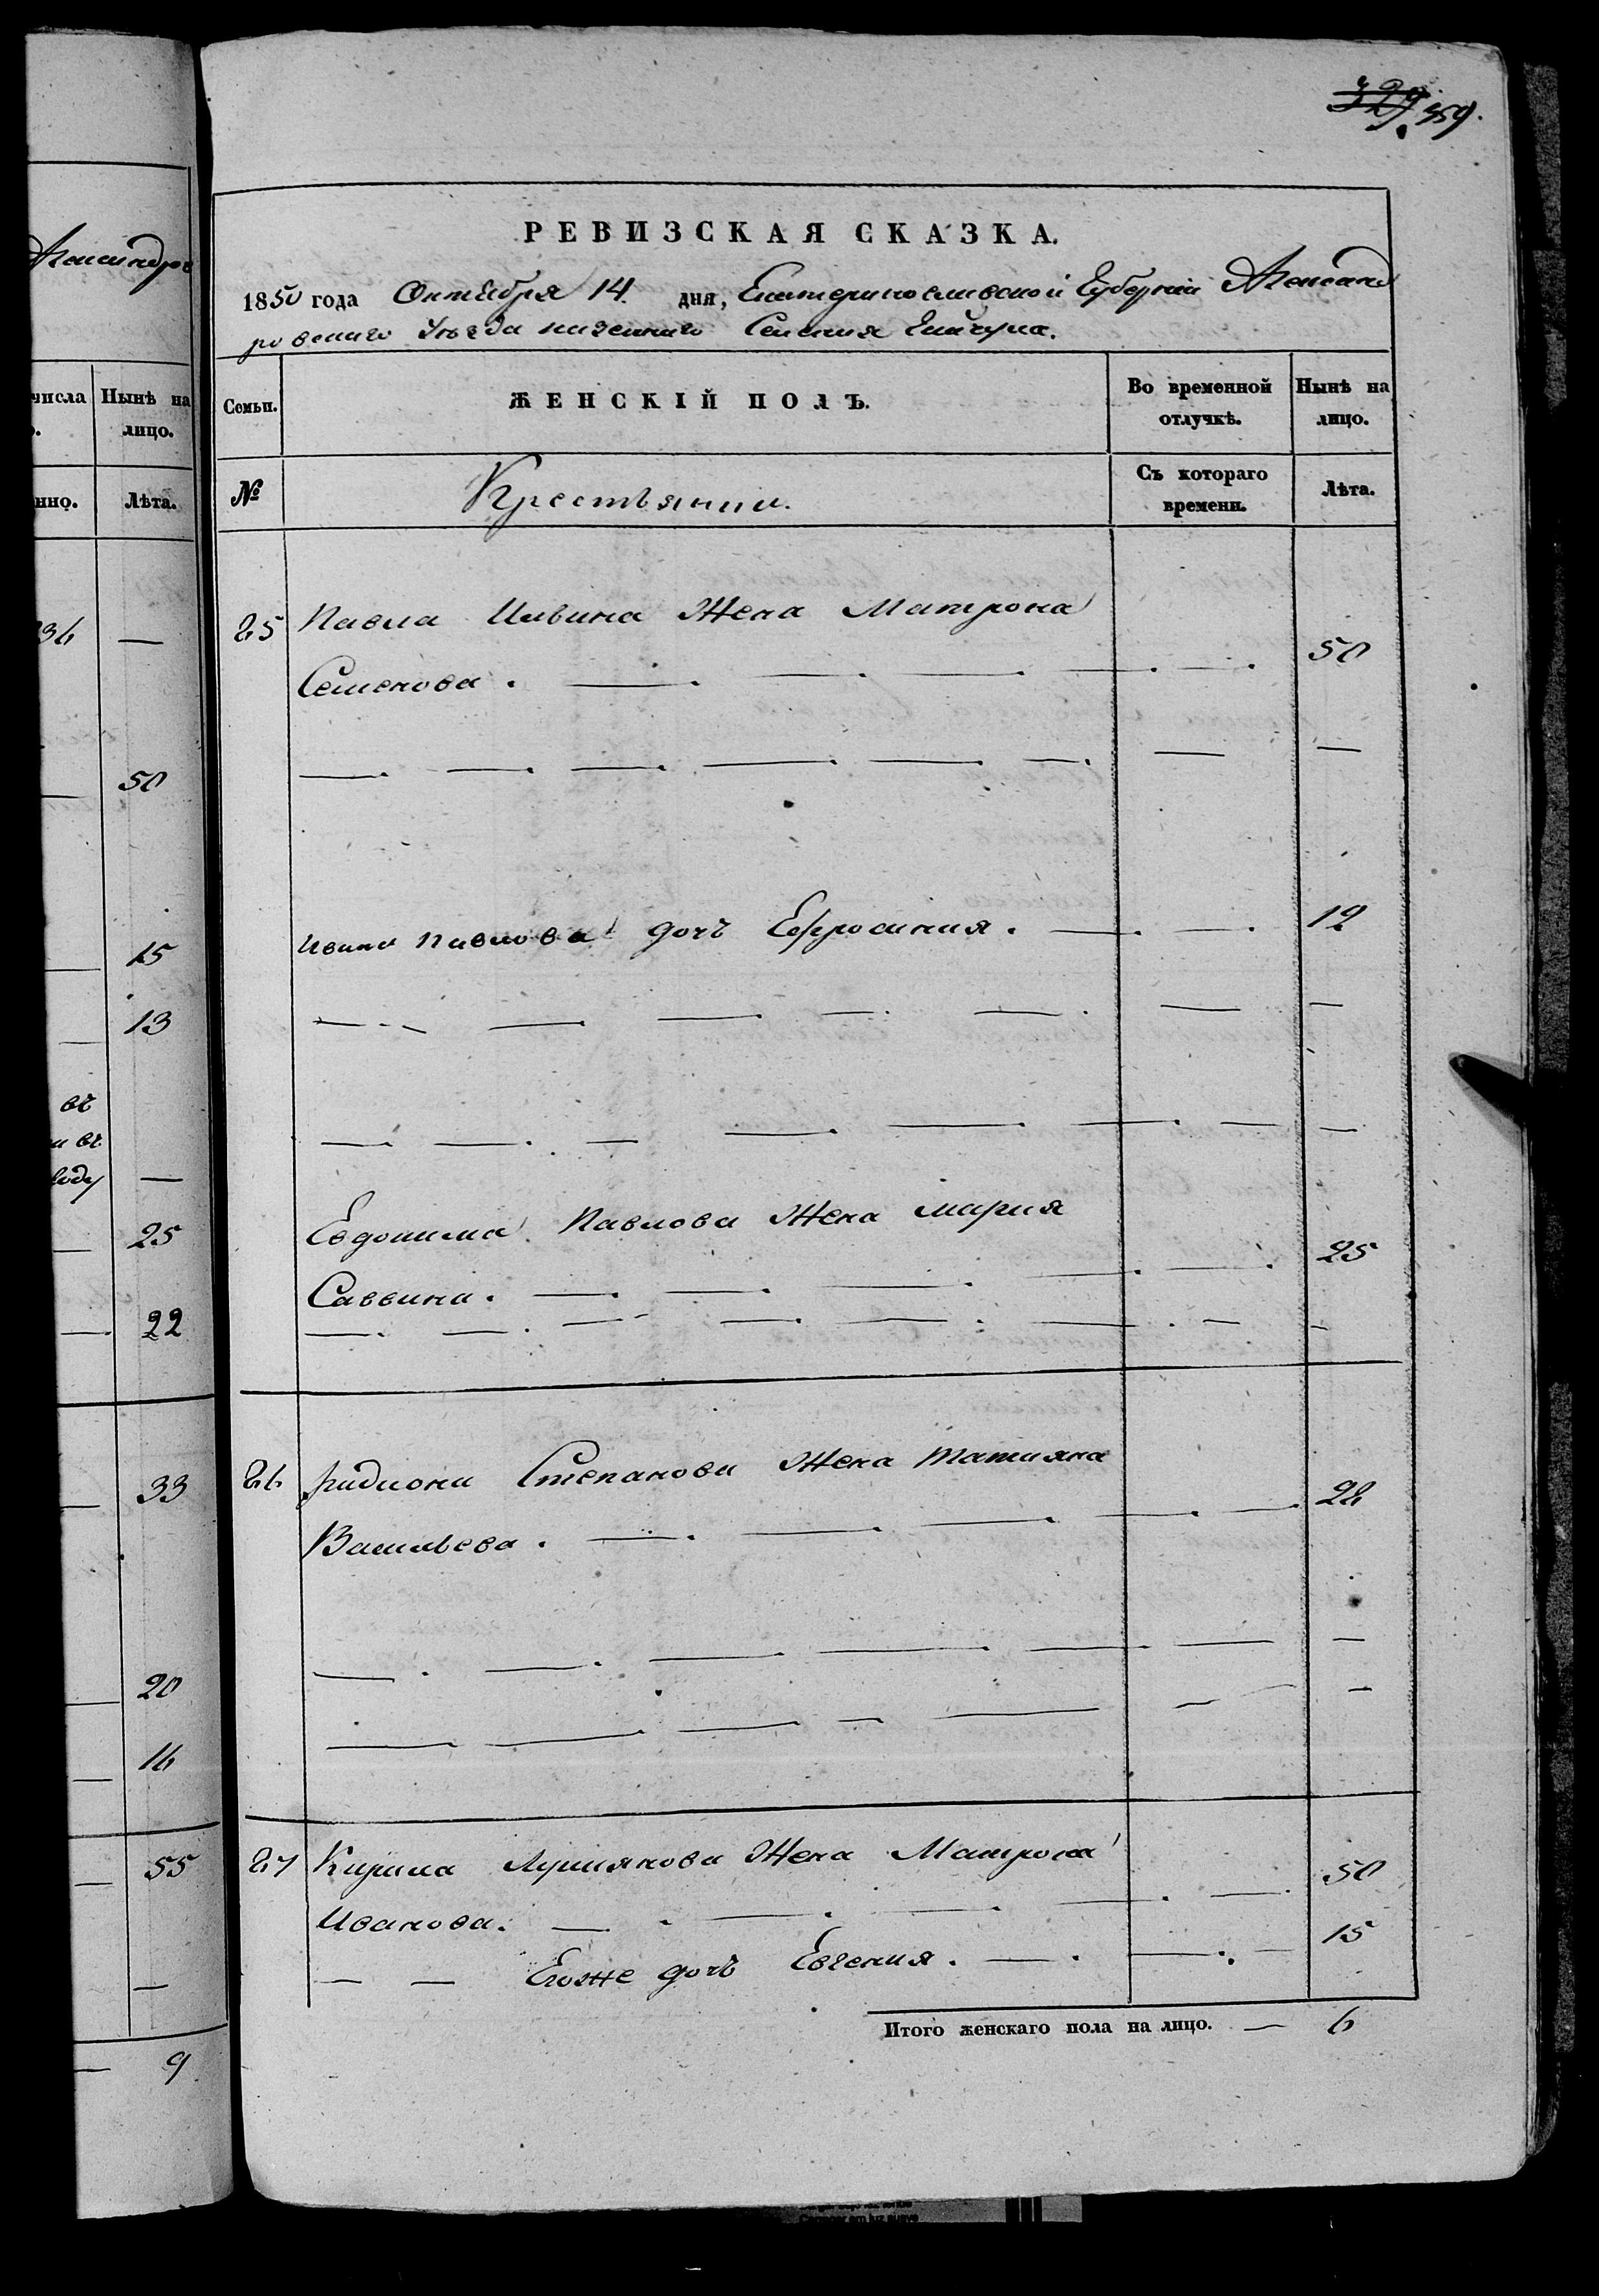 Александро
числа Нынѣ на
лицо.
нно. Лѣта.
36 —
50
15
13
въ
и въ
году —
25
22
33
20
16
55
—
9
329. 359.
РЕВИЗСКАЯ СКАЗКА.
1850 года Октября 14. дня, Екатеринославской Губерніи Александ
ровскаго Уѣзда казеннаго Селенія
Семьи. ЖЕНСКІЙ ПОЛЪ. Во временной отлучкѣ. Нынѣ на лицо.
№ Крестьянии. Съ котораго времени. Лѣта.
25 Павла Ильина Жена Матрона
Семенова. — 50
Ивана Павлова дочь Ефросиния. — 12
Евдокима Павлова Жена Мария
Саввина. — 25
26 Радиона Степанова Жена Татияна
Васильева. — 28
27 Кирила Жена Матрона
Иванова. — 50
— — Егоже дочь Евгения. — 15
Итого женскаго пола на лицо. — 6